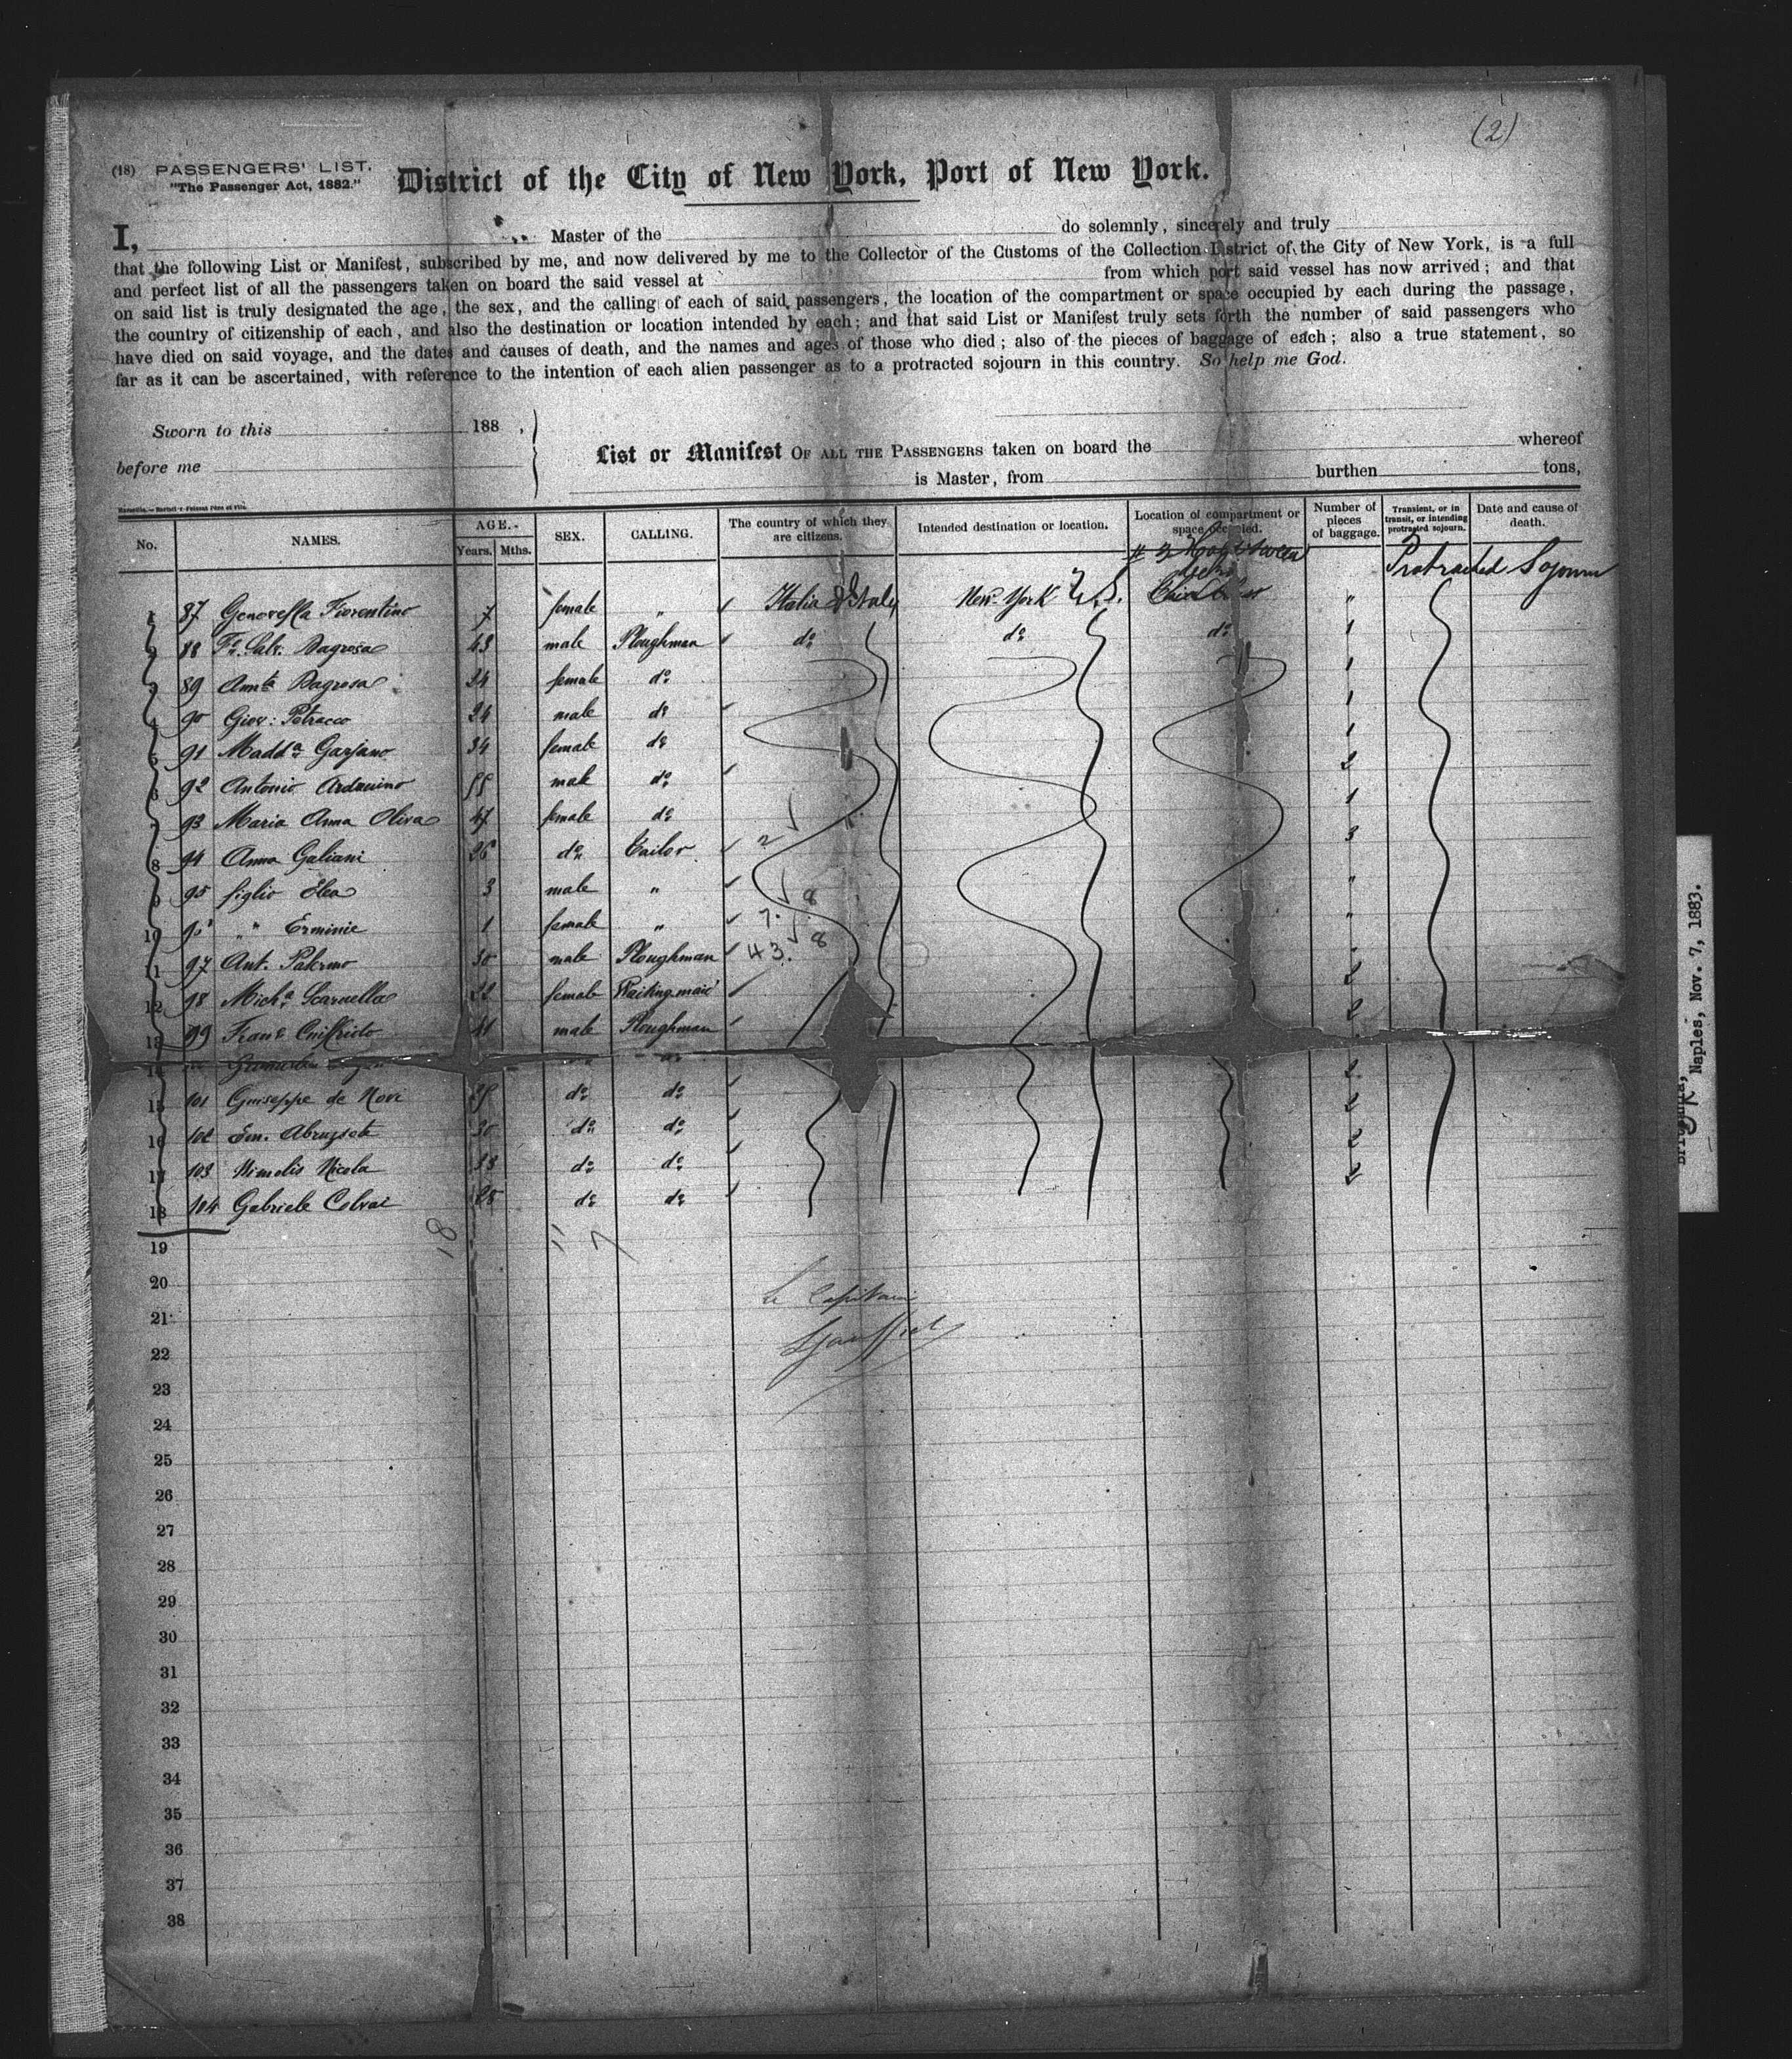 (2)
(18) PASSENGERS' LIST.
"The Passenger Act, 1882."
District of the City of New York, Port of New York.
I, Master of the do solemnly, sincerely and truly
that the following List or Manifest, subscribed by me, and now delivered by me to the Collector of the Customs of the Collection District of the City of New York, is a full
and perfect list of all the passengers taken on board the said vessel at from which port said vessel has now arrived; and that
on said list is truly designated the age, the sex, and the calling of each of said passengers, the location of the compartment or space occupied by each during the passage,
the country of citizenship of each, and also the destination or location intended by each; and that said List or Manifest truly sets forth the number of said passengers who
have died on said voyage, and the dates and causes of death, and the names and ages of those who died; also of the pieces of baggage of each; also a true statement, so
far as it can be ascertained, with reference to the intention of each alien passenger as to a protracted sojourn in this country. So help me God.
Sworn to this 188 ,
before me
List or Manifest OF ALL THE PASSENGERS taken on board the whereof
is Master, from burthen tons,
No. NAMES. AGE. Years. Mths. SEX. CALLING. The country of which they are citizens. Intended destination or location. Location of compartment or space occupied. Number of pieces of baggage. Transient, or in transit, or intending protracted sojourn. Date and cause of death.
Protracted Sojourn
1 87 Genoveffa Fiorentino 7 female " Italia Italy New York U.S. "
2 88 Fr. Salv. Dagrosa 43 male Ploughman do do do 1
3 89 Annta Dagrosa 24 female do 1
4 90 Giov: Petracco 24 male do 1
5 91 Madda Garfano 34 female do 1
6 92 Antonio Arduuino 55 male do 2
7 93 Maria Anna Oliva 47 female do 1
8 94 Anna Galiani 26 do Tailor 3
9 95 figlio Elea 3 male " "
10 " Erminie 1 female " "
11 97 Ant. Palermo 30 male Ploughman
12 98 Micha Scarnella 22 female Waiting maid 2
13 99 Franc 41 male Ploughman 2
14 do 2
15 101 Guiseppe de Novi do do 2
16 102 Em. Abruzzete 30 do do 2
17 103 Mimolis Nicola 33 do do 2
18 104 Gabriele Colvai 25 do do
18 11 7
19
20
21
22
23
24
25
26
27
28
29
30
31
32
33
34
35
36
37
38
Le Capitaine
Naples, Nov. 7, 1883.